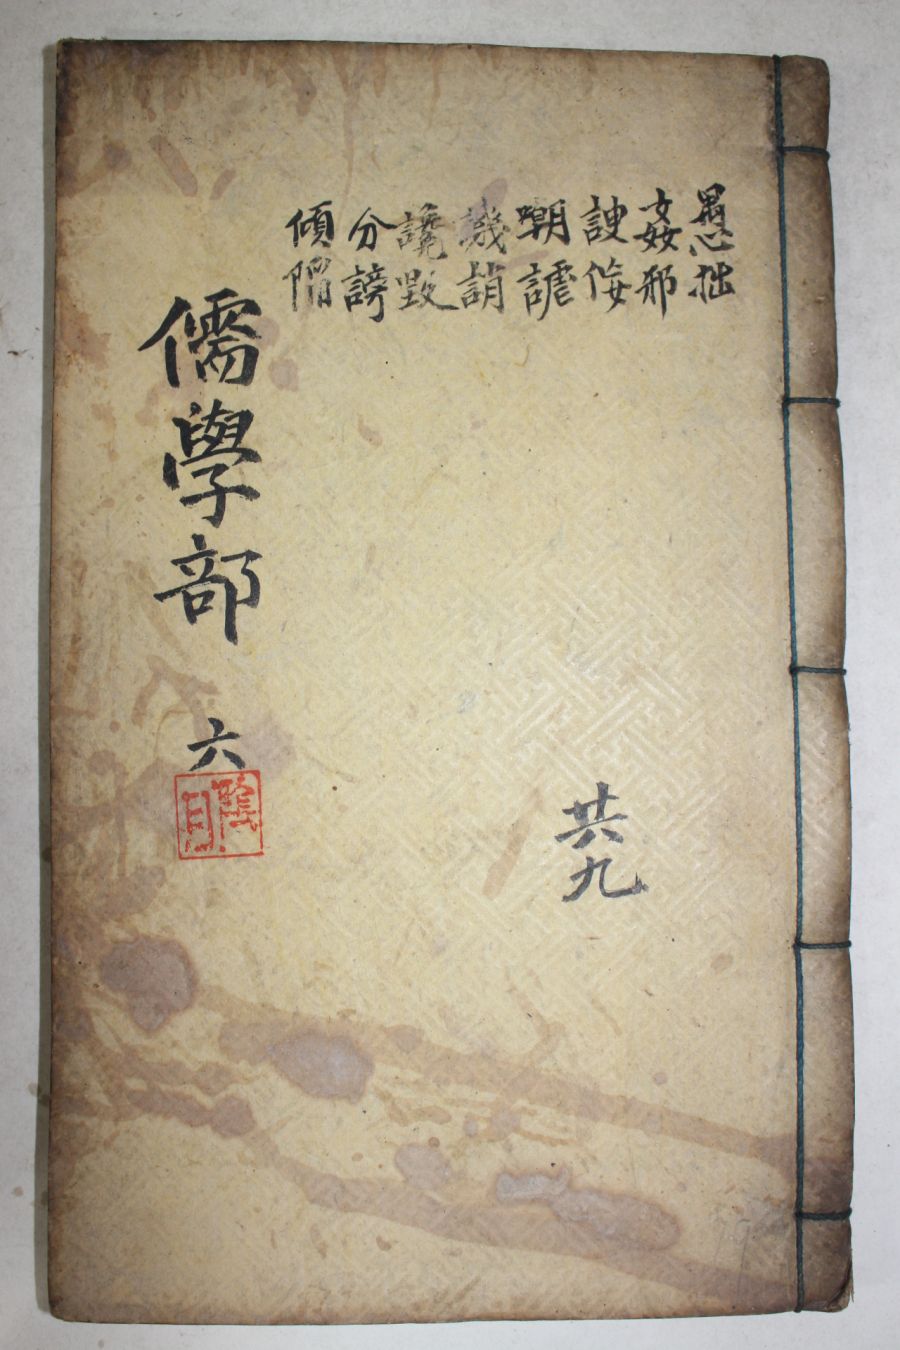 愚拙
姦邪
諛侫
嘲謔
譏誚
讒毀
分謗
傾陷
儒學部 六
共九